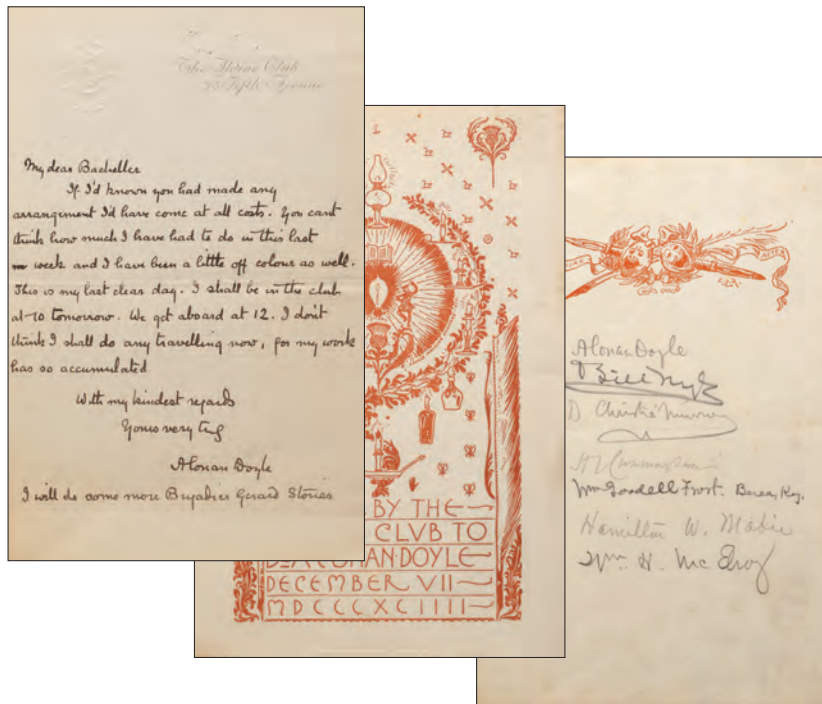 The Aldine Club
75 Fifth Avenue
My dear Bacheller
If I'd known you had made any
arrangement I'd have come at all costs. You cant
think how much I have had to do in this last
week and I have been a little off colour as well.
This is my last clear day. I shall be in the club
at 10 tomorrow. We get aboard at 12. I don't
think I shall do any travelling now, for my work
has so accumulated
With my kindest regards
Yours very truly
A Conan Doyle
I will do some more Brigadier Gerard Stories
BY THE
CLVB TO
DR A CONAN DOYLE
DECEMBER VII
MDCCCXCIIII
A Conan Doyle
Bill Nye
D Christie Murray
Wm Goodell Frost. Berea, Ky.
Hamilton W. Mabie
Wm. H. McElroy